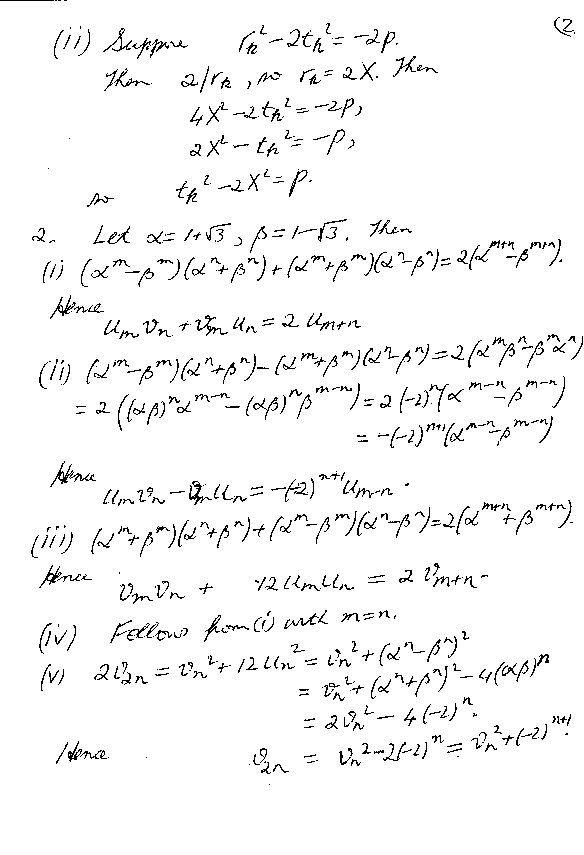 (2
(ii) Suppose r_k² - 2t_k² = -2p.
Then 2|r_k, so r_k = 2X. Then
4X² - 2t_k² = -2p,
2X² - t_k² = -p,
so t_k² - 2X² = p.
2. Let α = 1+√3, β = 1-√3. Then
(i) (α^m - β^m)(α^n + β^n) + (α^m + β^m)(α^n - β^n) = 2(α^{m+n} - β^{m+n}).
Hence
u_m v_n + v_m u_n = 2 u_{m+n}
(ii) (α^m - β^m)(α^n + β^n) - (α^m + β^m)(α^n - β^n) = 2(α^m β^n - β^m α^n)
= 2((αβ)^n α^{m-n} - (αβ)^n β^{m-n}) = 2(-2)^n (α^{m-n} - β^{m-n})
= -(-2)^{n+1} (α^{m-n} - β^{m-n})
Hence
u_m v_n - v_m u_n = -(-2)^{n+1} u_{m-n}.
(iii) (α^m + β^m)(α^n + β^n) + (α^m - β^m)(α^n - β^n) = 2(α^{m+n} + β^{m+n}).
Hence v_m v_n + 12 u_m u_n = 2 v_{m+n}.
(iv) Follows from (i) with m=n.
(v) 2v_{2n} = v_n² + 12 u_n² = v_n² + (α^n - β^n)²
= v_n² + (α^n + β^n)² - 4(αβ)^n
= 2v_n² - 4(-2)^n.
Hence v_{2n} = v_n² - 2(-2)^n = v_n² + (-2)^{n+1}